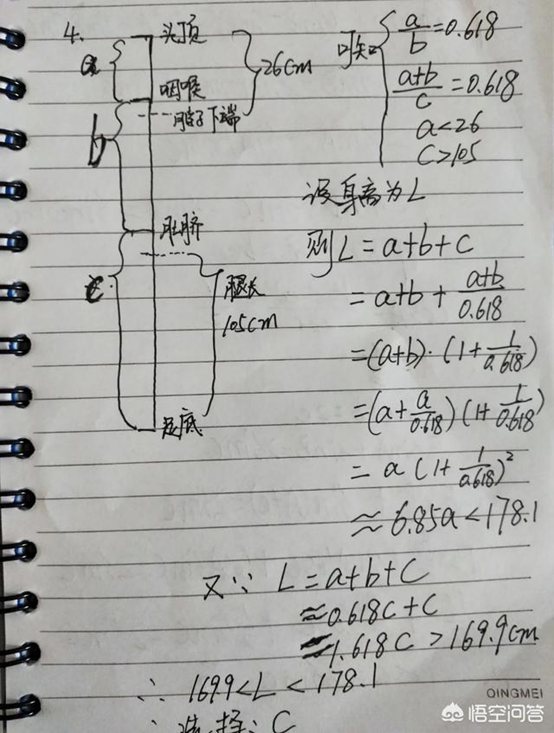 4.
a
头顶
26cm
咽喉
脖子下端
b
肚脐
c
腿长
105cm
足底
可知 a/b=0.618
(a+b)/c=0.618
a<26
c>105
设身高为L
则L=a+b+c
=a+b+(a+b)/0.618
=(a+b)·(1+1/0.618)
=(a+a/0.618)(1+1/0.618)
=a(1+1/0.618)²
≈6.85a<178.1
又∵ L=a+b+c
≈0.618c+c
=1.618c>169.9cm
∴ 169.9<L<178.1
∴ 选择:C
QINGMEI
悟空问答